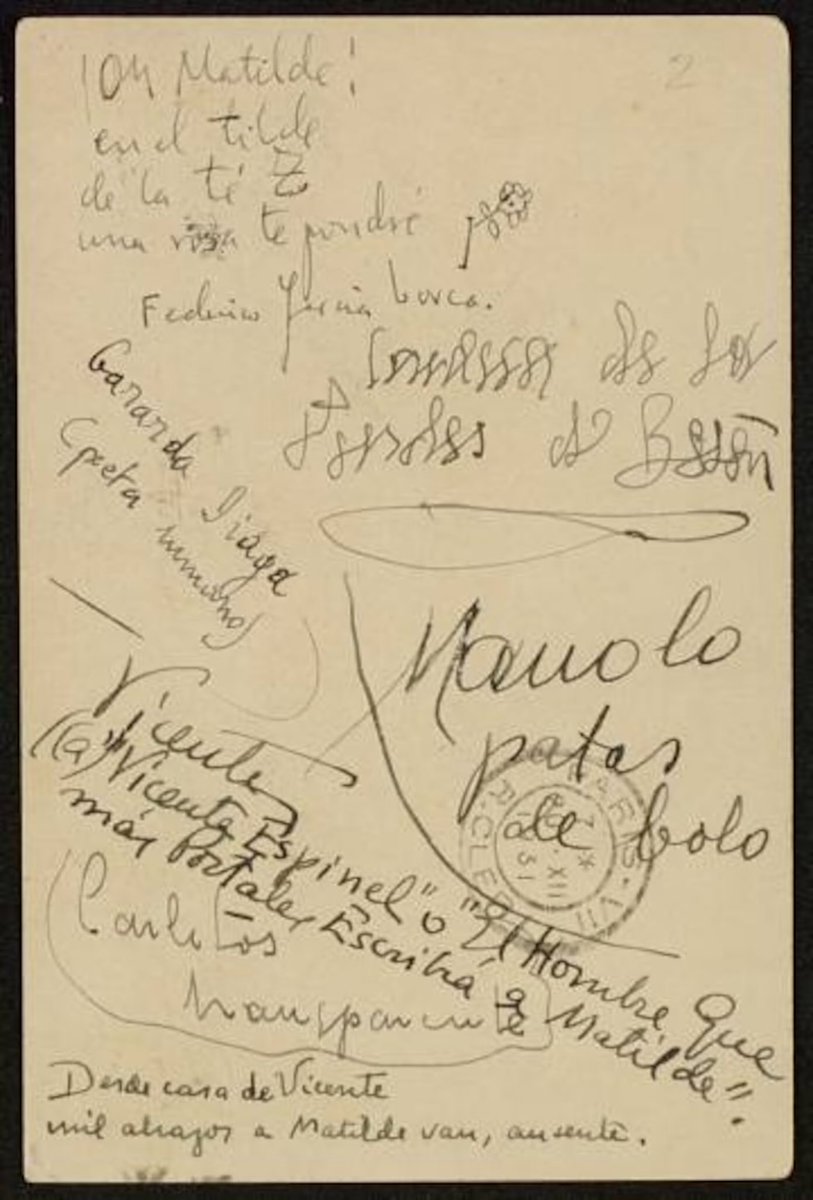 ¡Oh Matilde!
en el tilde
de la té Z
una rosa te pondré
Federico García Lorca.
2
Condesa de los
d'
Gararda Diaga
(poeta humano)
Manolo
patas
de bolo
PARIS · VII
R. CLER
XII
31
Vicente
(a) "Vicente Espinel" o "El Hombre que
más Postales Escribía a Matilde".
Carlitos
transparente
Desde casa de Vicente
mil abrazos a Matilde van, ausente.